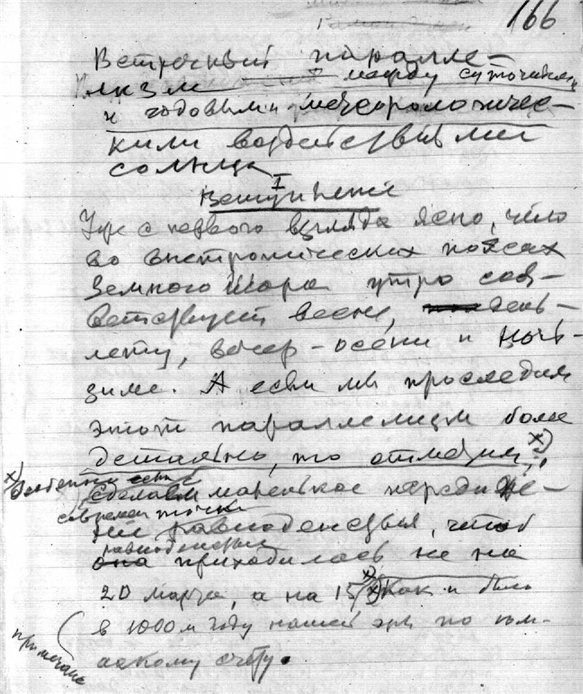 166
Встречный паралле-
лизм между суточными
и годовыми метеорологичес-
кими воздействиями
солнца
I
Вступление
Уже с первого взгляда ясно, что
во внетропических поясах
Земного Шара утро соо-
ветствует весне, день-
лету, вечер-осени и ночь-
зиме. А если мы проследим
этот параллелизм более
детально, то отметим, х)
х) Особенно если
сделаем маленькое передвиже-
современ точки
ние равноденствия, чтоб
равноденствие
она приходилась не на
20 марта, а на 15 х) Как и было
в 1000 м году нашей эры по юли-
анскому счету.
примечание